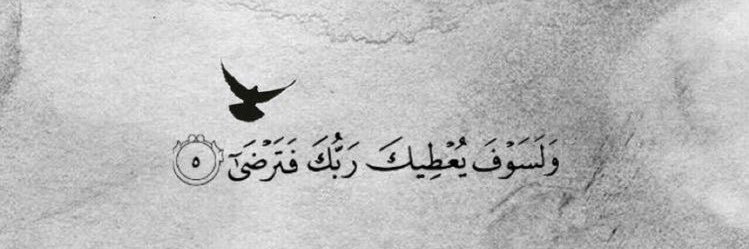 وَلَسَوۡفَ يُعۡطِيكَ رَبُّكَ فَتَرۡضَىٰٓ ٥